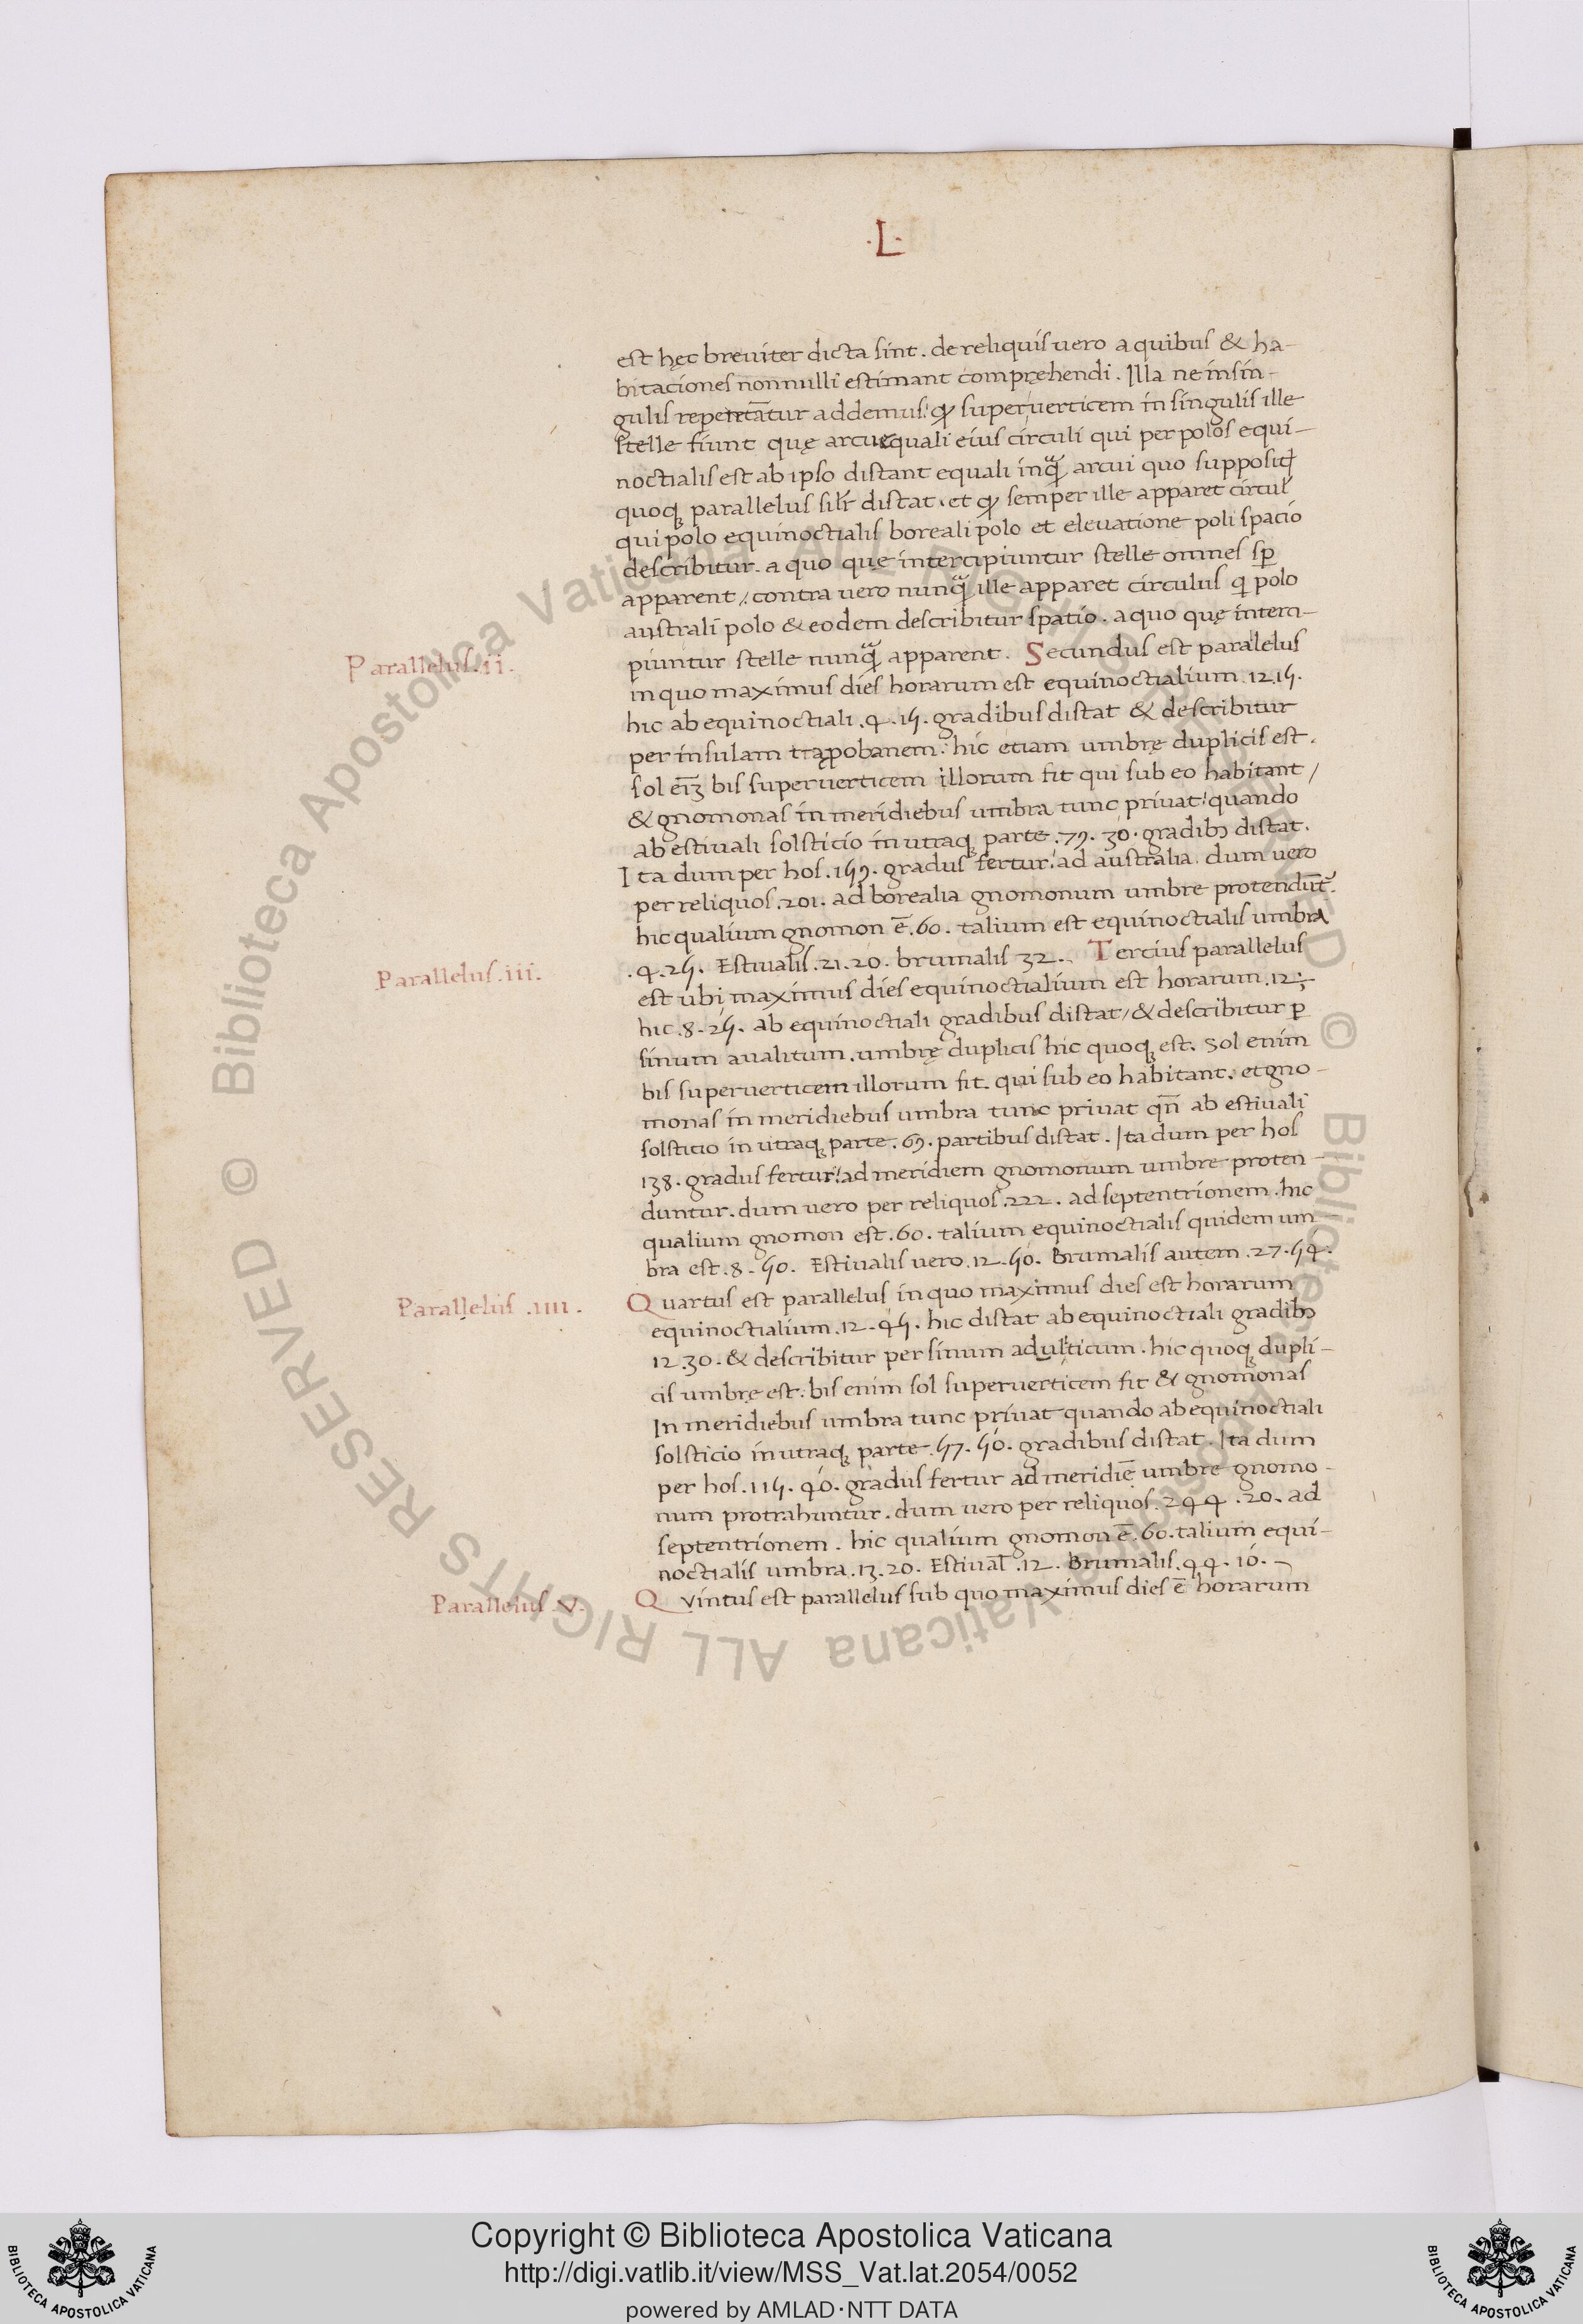 ·L·
est hęc breuiter dicta sint. de reliquis uero a quibus & ha-
bitaciones nonnulli estimant compręhendi. Illa ne in sin-
gulis repetātur addemus: super uerticem in singulis ille
stelle fiunt quę arcu equali eius circuli qui per polos equi-
noctialis est ab ipso distant equali arcui quo
quoqꝫ parallelus silr distat. et semper ille apparet
qui polo equinoctialis boreali polo et eleuatione poli spacio
describitur. a quo quę intercipiuntur stelle omnes sp
apparent/. contra uero ille apparet circulus q polo
australi polo & eodem describitur spatio. a quo quę interci-
piuntur stelle apparent. Secundus est paralelus
Parallelus .ii.
in quo maximus dies horarum est equinoctialium .12.15.
hic ab equinoctiali .4.15. gradibus distat & describitur
per insulam trapobanem: hic etiam umbrę duplicis est.
sol bis super uerticem illorum fit qui sub eo habitant/
& gnomonas in meridiebus umbra tunc priuat: quando
ab estiuali solsticio in utraqꝫ parte .79.30. gradibꝰ distat.
Ita dum per hos .159. gradus fertur: ad australia. dum uero
per reliquos .201. ad borealia gnomonum umbre
hic qualium gnomon ē .60. talium est equinoctialis umbra
.4.25. Estiualis .21.20. brumalis 32. Tercius parallelus
Parallelus .iii.
est ubi maximus dies equinoctialium est horarum .12;
hic .8.25. ab equinoctiali gradibus distat/ & describitur ꝑ
sinum aualitum. umbrę duplicis hic quoqꝫ est. Sol enim
bis super uerticem illorum fit. qui sub eo habitant. et gno-
monas in meridiebus umbra tunc priuat qn̄ ab estiuali
solsticio in utraqꝫ parte .69. partibus distat. Ita dum per hos
138. gradus fertur: ad meridiem gnomonum umbre proten-
duntur. dum uero per reliquos .222. ad septentrionem. hic
qualium gnomon est .60. talium equinoctialis quidem um-
bra est .8.50. Estiualis uero .12.50. Brumalis autem .27.54.
Parallelus .iiii.
Quartus est parallelus in quo maximus dies est horarum
equinoctialium .12.45. hic distat ab equinoctiali gradibꝰ
12.30. & describitur per sinum adulticum. hic quoqꝫ dupli-
cis umbrę est: bis enim sol super uerticem fit & gnomonas
In meridiebus umbra tunc priuat quando ab equinoctiali
solsticio in utraqꝫ parte .57.50. gradibus distat. Ita dum
per hos .115.40. gradus fertur ad meridiē umbre gnomo-
num protrahuntur. dum uero per reliquos .244.20. ad
septentrionem. hic qualium gnomon ē .60. talium equi-
noctialis umbra .13.20. Estiual .12. Brumalis .44.10.
Parallelus .V.
Quintus est parallelus sub quo maximus dies ē horarum
© Biblioteca Apostolica Vaticana ALL RIGHTS RESERVED © Biblioteca Apostolica Vaticana ALL RIGHTS RESERVED
Copyright © Biblioteca Apostolica Vaticana
http://digi.vatlib.it/view/MSS_Vat.lat.2054/0052
powered by AMLAD·NTT DATA
BIBLIOTECA APOSTOLICA VATICANA
BIBLIOTECA APOSTOLICA VATICANA